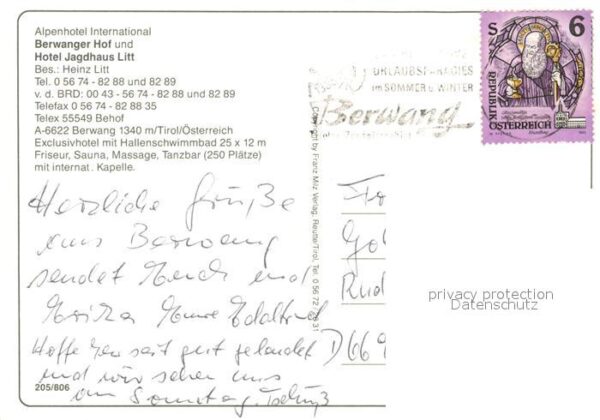 Alpenhotel International
Berwanger Hof und
Hotel Jagdhaus Litt
Bes.: Heinz Litt
Tel. 0 56 74 - 82 88 und 82 89
v. d. BRD: 00 43 - 56 74 - 82 88 und 82 89
Telefax 0 56 74 - 82 88 35
Telex 55549 Behof
A-6622 Berwang 1340 m/Tirol/Österreich
Exclusivhotel mit Hallenschwimmbad 25 x 12 m
Friseur, Sauna, Massage, Tanzbar (250 Plätze)
mit internat. Kapelle.
Herzliche Grüße
aus Berwang
sendet Euch und
Erika
Hoffe Ihr seit gut gelandet
und wir sehen uns
am Sonntag. Tschüß
205/806
Copyright by Franz Milz Verlag, Reutte/Tirol, Tel. 0 56 72
IM SOMMER u. WINTER
Berwang
6
REPUBLIK
ÖSTERREICH
Rud
D 669
privacy protection
Datenschutz